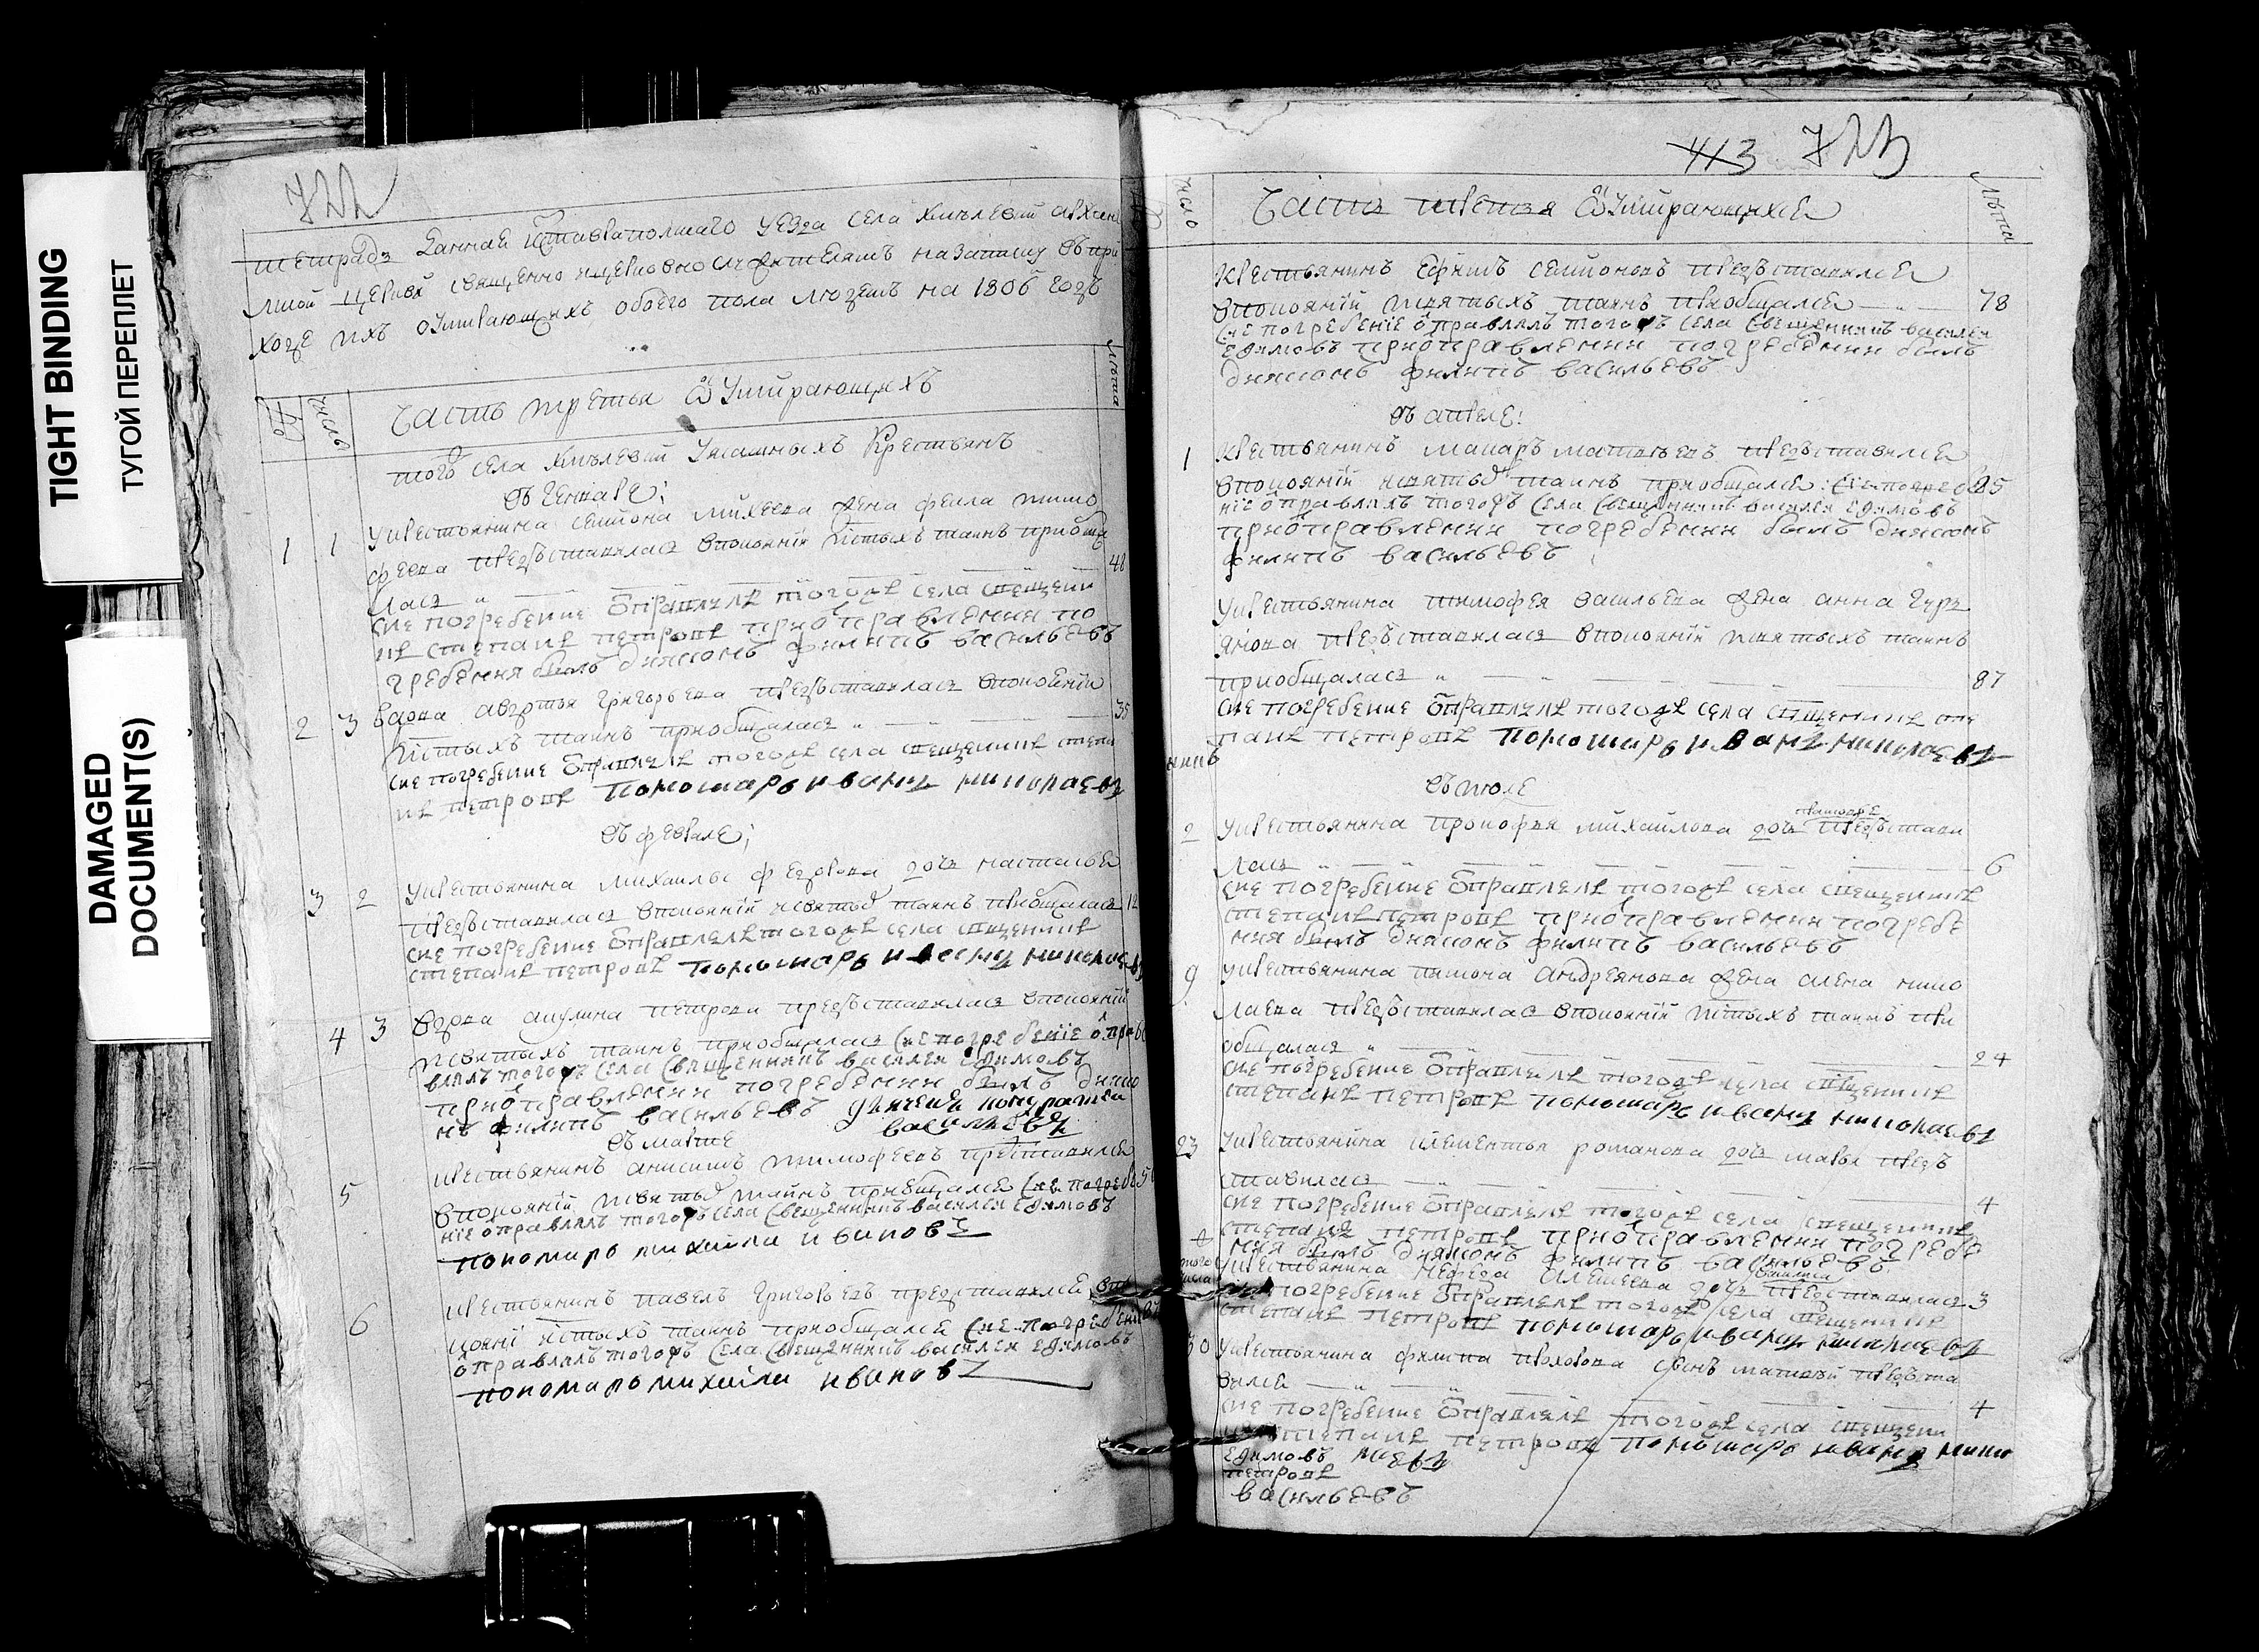 TIGHT BINDING
ТУГОЙ ПЕРЕПЛЕТ
DAMAGED
DOCUMENT(S)
722
тетрадь данная ставрополшаго уезда села хмелевки архан
ходе ихъ ѡумирающихъ обоего пола людемъ на 1806 годъ
число
лѣта
часть третья ѿ умирающихъ
того села хмѣлевки Крестьянъ
въ генваре:
1 1 укрестьянина семиона михеева жена фекла тимо
феева предъставилась впокоянии истыхъ таинъ приобща
лась 48
сие погребение ѿправлялъ тогожъ села священни
къ степанъ петровъ приѿправлении по
гребения былъ диякомъ филипъ васильевъ
2 3 вдова авдотья григорьева предъставилась впокоянии
истыхъ таинъ приобщалась 35
сие погребение ѿправлялъ тогожъ села священникъ степа
нъ петровъ пономарь иванъ николаевъ
въ феврале;
3 2 укрестьянина михаилы федорова дочь настасья
предъставилась впокоянии исвятыхъ таинъ приобщалась 12
сие погребение ѿправлялъ тогожъ села священникъ
степанъ петровъ пономарь иванъ николаевъ
4 3 вдова акулина петрова предъставилась впокоянии
исвятыхъ таинъ приобщалась сие погребение ѿпра
влялъ тогожъ села священникъ василей ефимовъ
приѿправлении погребении былъ диако
нъ филипъ васильевъ дьячекъ кондратей
васильевъ
въ марте
5 крестьянинъ анисимъ тимофеевъ преставился
впокоянии исвятыхъ таинъ приобщался сие погребе
ние ѿправлялъ тогожъ села священникъ василей ефимовъ
пономарь михайла ивановъ
6 крестьянинъ павелъ григорьевъ представился впо
коянии истыхъ таинъ приобщался сие погребение
ѿправлялъ тогожъ села священникъ василей ефимовъ
пономарь михайла ивановъ
413 723
число
часть третья ѿ умирающихся
лѣта
крестьянинъ ефимъ семионовъ предъставился
впокоянии исвятыхъ таинъ приобщался 78
сие погребение ѿправлялъ тогожъ села священникъ василей
ефимовъ приѿправлении погребении былъ
диякомъ филипъ васильевъ
въ апреле:
1 крестьянинъ макаръ матвеевъ предъставился
впокоянии исвятыхъ таинъ приобщался: сие погребе 85
ние ѿправлялъ тогожъ села священникъ василей ефимовъ
приѿправлении погребении былъ диякомъ
филипъ васильевъ
укрестьянина тимофея васильева жена анна гурь
янова предъставилась впокоянии исвятыхъ таинъ
приобщалась 87
сие погребение ѿправлялъ тогожъ села священникъ сте
панъ петровъ пономарь иванъ николаевъ
въ июле
2 укрестьянина прокофья михайлова дочь предъстави
лась 6
сие погребение ѿправлялъ тогожъ села священникъ
степанъ петровъ приѿправлении погребе
ния былъ диякомъ филипъ васильевъ
9 укрестьянина пимона андреянова жена алена нико
лаева предъставилась впокоянии истыхъ таинъ при
общалась 24
сие погребение ѿправлялъ тогожъ села священникъ
степанъ петровъ пономарь иванъ николаевъ
23 укрестьянина клементья романова дочь марья предъ
ставилась 4
сие погребение ѿправлялъ тогожъ села священникъ
степанъ петровъ приѿправлении погребе
ния былъ диякомъ филипъ васильевъ
укрестьянина нефеда алексеева дочь предъставилась 3
сие погребение ѿправлялъ тогожъ села священникъ
степанъ петровъ пономарь иванъ николаевъ
30 укрестьянина филипа прохорова сынъ матвей предъста
вился 4
сие погребение ѿправлялъ тогожъ села священни
къ степанъ петровъ пономарь иванъ нико
ефимовъ лаевъ
петровъ
васильевъ